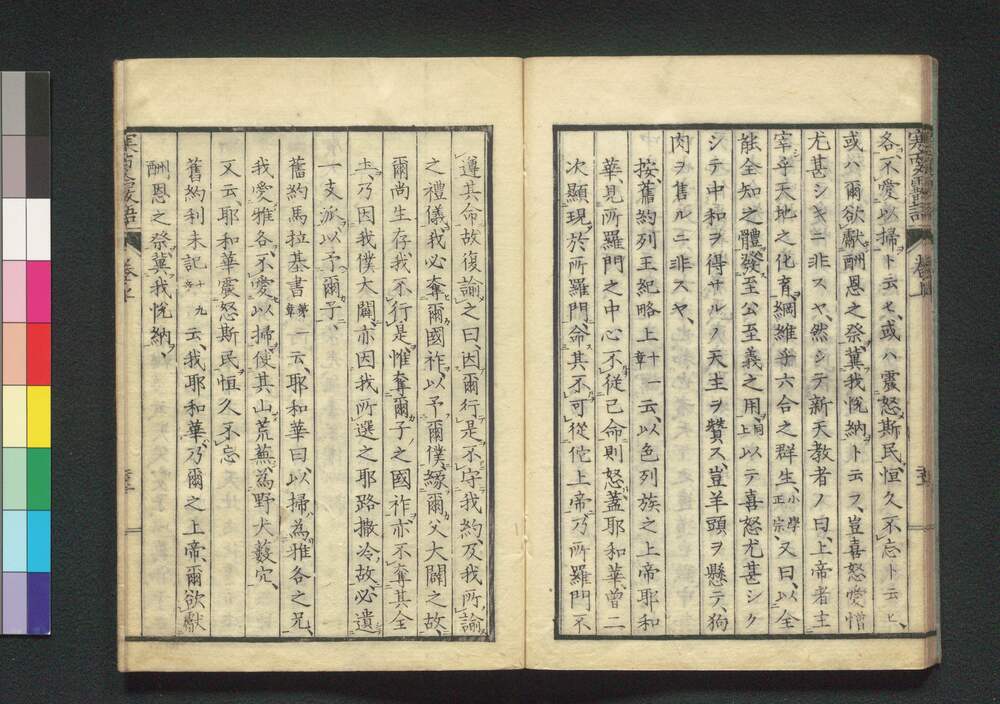 各ヲ、不愛以掃ト云ヒ、或ハ震怒斯民、恒久不忘ト云ヒ、
或ハ爾欲獻酬恩之祭、冀我悅納ト云フ、豈喜怒愛憎
尤甚シキニ非スヤ、然シテ新天教者ノ曰、上帝者主
宰乎天地之化育、綱維乎六合之群生、小學正宗、又曰、以全
能全知之體、發至公至義之用、同上以テ喜怒尤甚シク
シテ中和ヲ得サルノ天主ヲ贊ス、豈羊頭ヲ懸テ、狗
肉ヲ舊ルニ非スヤ、
按、舊約列王紀略上十一章云、以色列族之上帝耶和
華、見所羅門之中心不從己命則怒、蓋耶和華、曾二
次顯現於所羅門、命其不可從侘上帝、乃所羅門不
遵其命、故復諭之曰、因爾行是、不守我約、及我所諭
之禮儀、我必奪爾國祚、以予爾僕、緣爾父大闢之故、
爾尚生存、我不行是、惟奪爾子之國祚、亦不奪其全
土、乃因我僕大闢、亦因我所選之耶路撒冷故、必遺
一支派、以予爾子、
舊約馬拉基書第一章云、耶和華曰、以掃為雅各之兄、
我愛雅各、不愛以掃、使其山荒蕪、為野犬藪穴、
又云耶和華震怒斯民、恒久不忘
舊約利未記十九章云、我耶和華、乃爾之上帝、爾欲獻
酬恩之祭、冀我悅納、